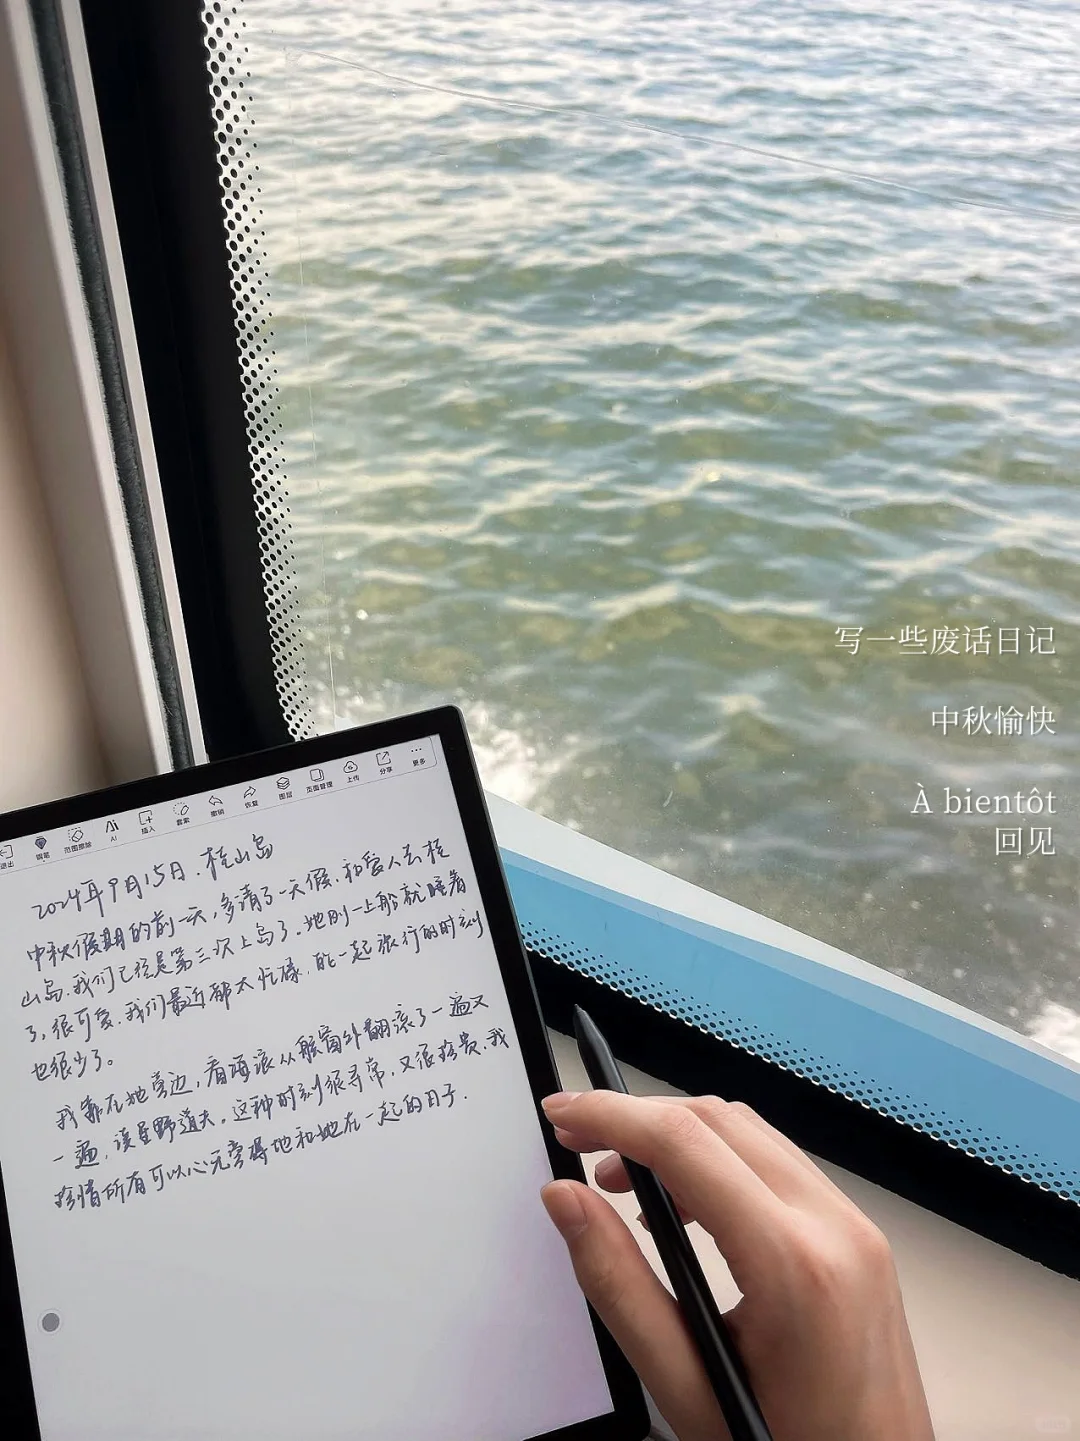 退出 钢笔 范围擦除 AI 插入 套索 撤销 恢复 图层 页面管理 上传 分享 更多
2024年9月15日.桂山岛
中秋假期的前一天,多请了一天假.和爱人去桂
山岛.我们已经是第三次上岛了.她刚一上船就睡着
了,很可爱.我们最近都太忙碌,能一起旅行的时刻
也很少了。
我靠在她旁边,看海浪从舷窗外翻滚了一遍又
一遍,读星野道夫。这种时刻很寻常,又很珍贵.我
珍惜所有可以心无旁骛地和她在一起的日子.
写一些废话日记
中秋愉快
À bientôt
回见